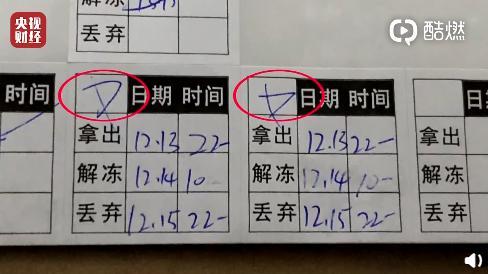 央视财经
酷燃
解冻
丢弃
时间
日期 时间
拿出 12.13 22-
解冻 12.14 10-
丢弃 12.15 22-
日期 时间
拿出 12.13 22-
解冻 12.14 10-
丢弃 12.15 22-
日期
拿出
解冻
丢弃